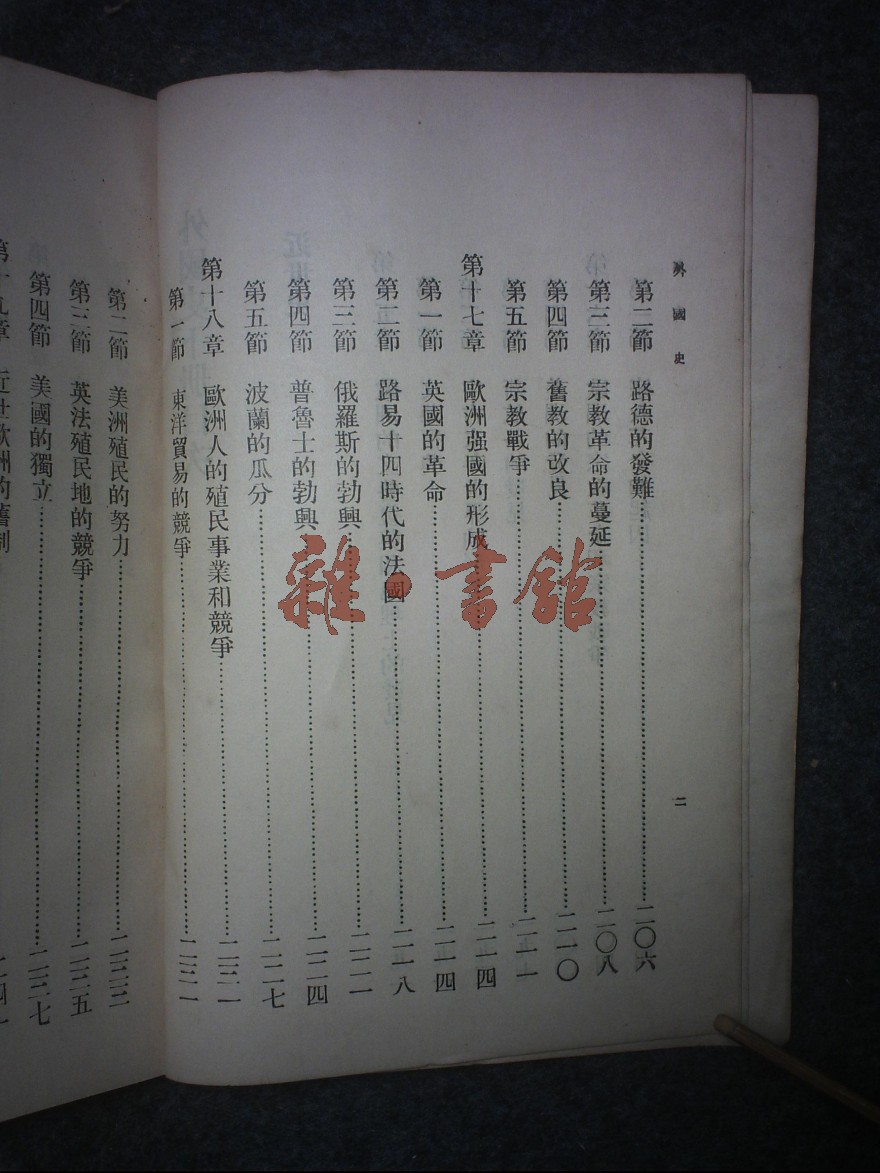 外國史
二
第二節 路德的發難……二〇六
第三節 宗教革命的蔓延……二〇八
第四節 舊教的改良……二一〇
第五節 宗教戰爭……二一一
第十七章 歐洲强國的形成……二一四
第一節 英國的革命……二一四
第二節 路易十四時代的法國……二一八
第三節 俄羅斯的勃興……二二一
第四節 普魯士的勃興……二二四
第五節 波蘭的瓜分……二二七
第十八章 歐洲人的殖民事業和競爭……二三一
第一節 東洋貿易的競爭……二三一
第二節 美洲殖民的努力……二三三
第三節 英法殖民地的競爭……二三五
第四節 美國的獨立……二三七
第十九章 近世歐洲的舊制
雜·書館